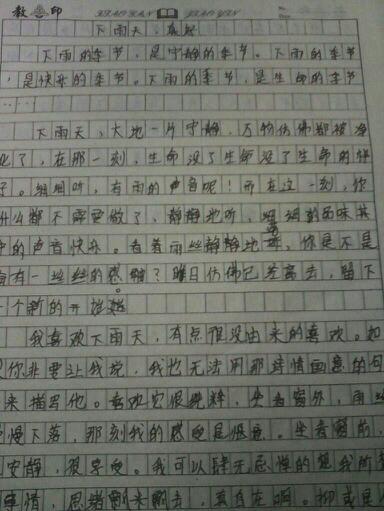 教 印 XIAO YIN
下雨天，
下雨的季节，是宁静的季节。下雨的季节
，是快乐的季节。下雨的季节，是生命的季节
……
下雨天，大地一片宁静，万物仿佛都被净
化了，在那一刻，生命没了生命没了生命的样
子。细细听，有雨的声音呢！而在这一刻，你
什么都不需要做了，静静地听，细细的品味其
中的声音快乐。看着雨丝静静地 你是不是
有一丝丝的感 ？昨日仿佛已 离去，留下
一个新的开始
我喜欢下雨天，有点很没由来的喜欢。如
你非要让我说，我也无法用那诗情画意的句
来描写他。喜欢它很纯粹，坐着窗外，雨
慢下落，那刻我的感觉是惬意。坐着窗前，
安静，很享受。我可以肆无忌惮的想我所
事情，思绪翻来翻去，真自在啊。抑或是